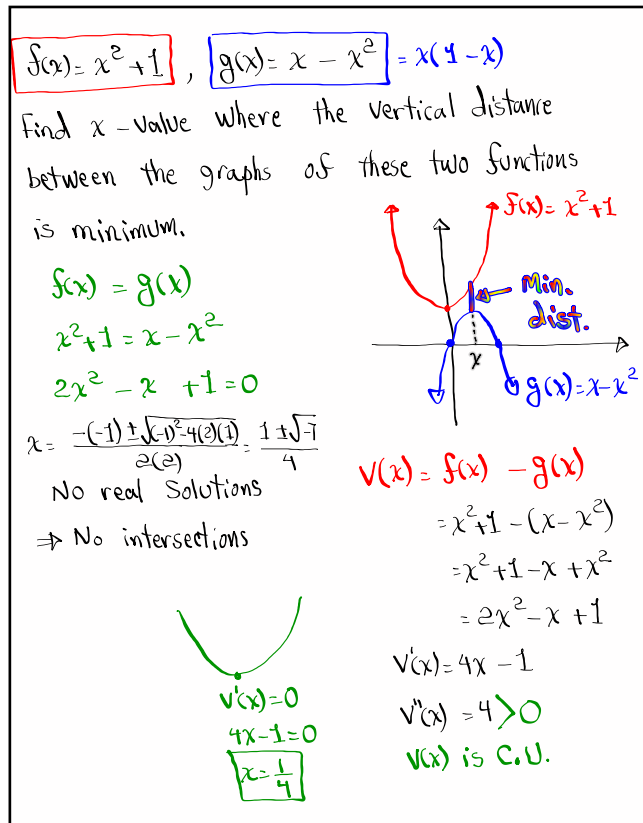 f(x) = x² + 1 , g(x) = x - x² = x(1 - x)
Find x-value where the vertical distance
between the graphs of these two functions
is minimum.
f(x) = x² + 1
Min.
dist.
x
g(x) = x - x²
f(x) = g(x)
x² + 1 = x - x²
2x² - x + 1 = 0
x = (-(-1) ± √((-1)² - 4(2)(1))) / 2(2) = (1 ± √-7) / 4
No real Solutions
⇒ No intersections
V(x) = f(x) - g(x)
= x² + 1 - (x - x²)
= x² + 1 - x + x²
= 2x² - x + 1
V'(x) = 4x - 1
V"(x) = 4 > 0
V(x) is C.U.
V'(x) = 0
4x - 1 = 0
x = 1/4